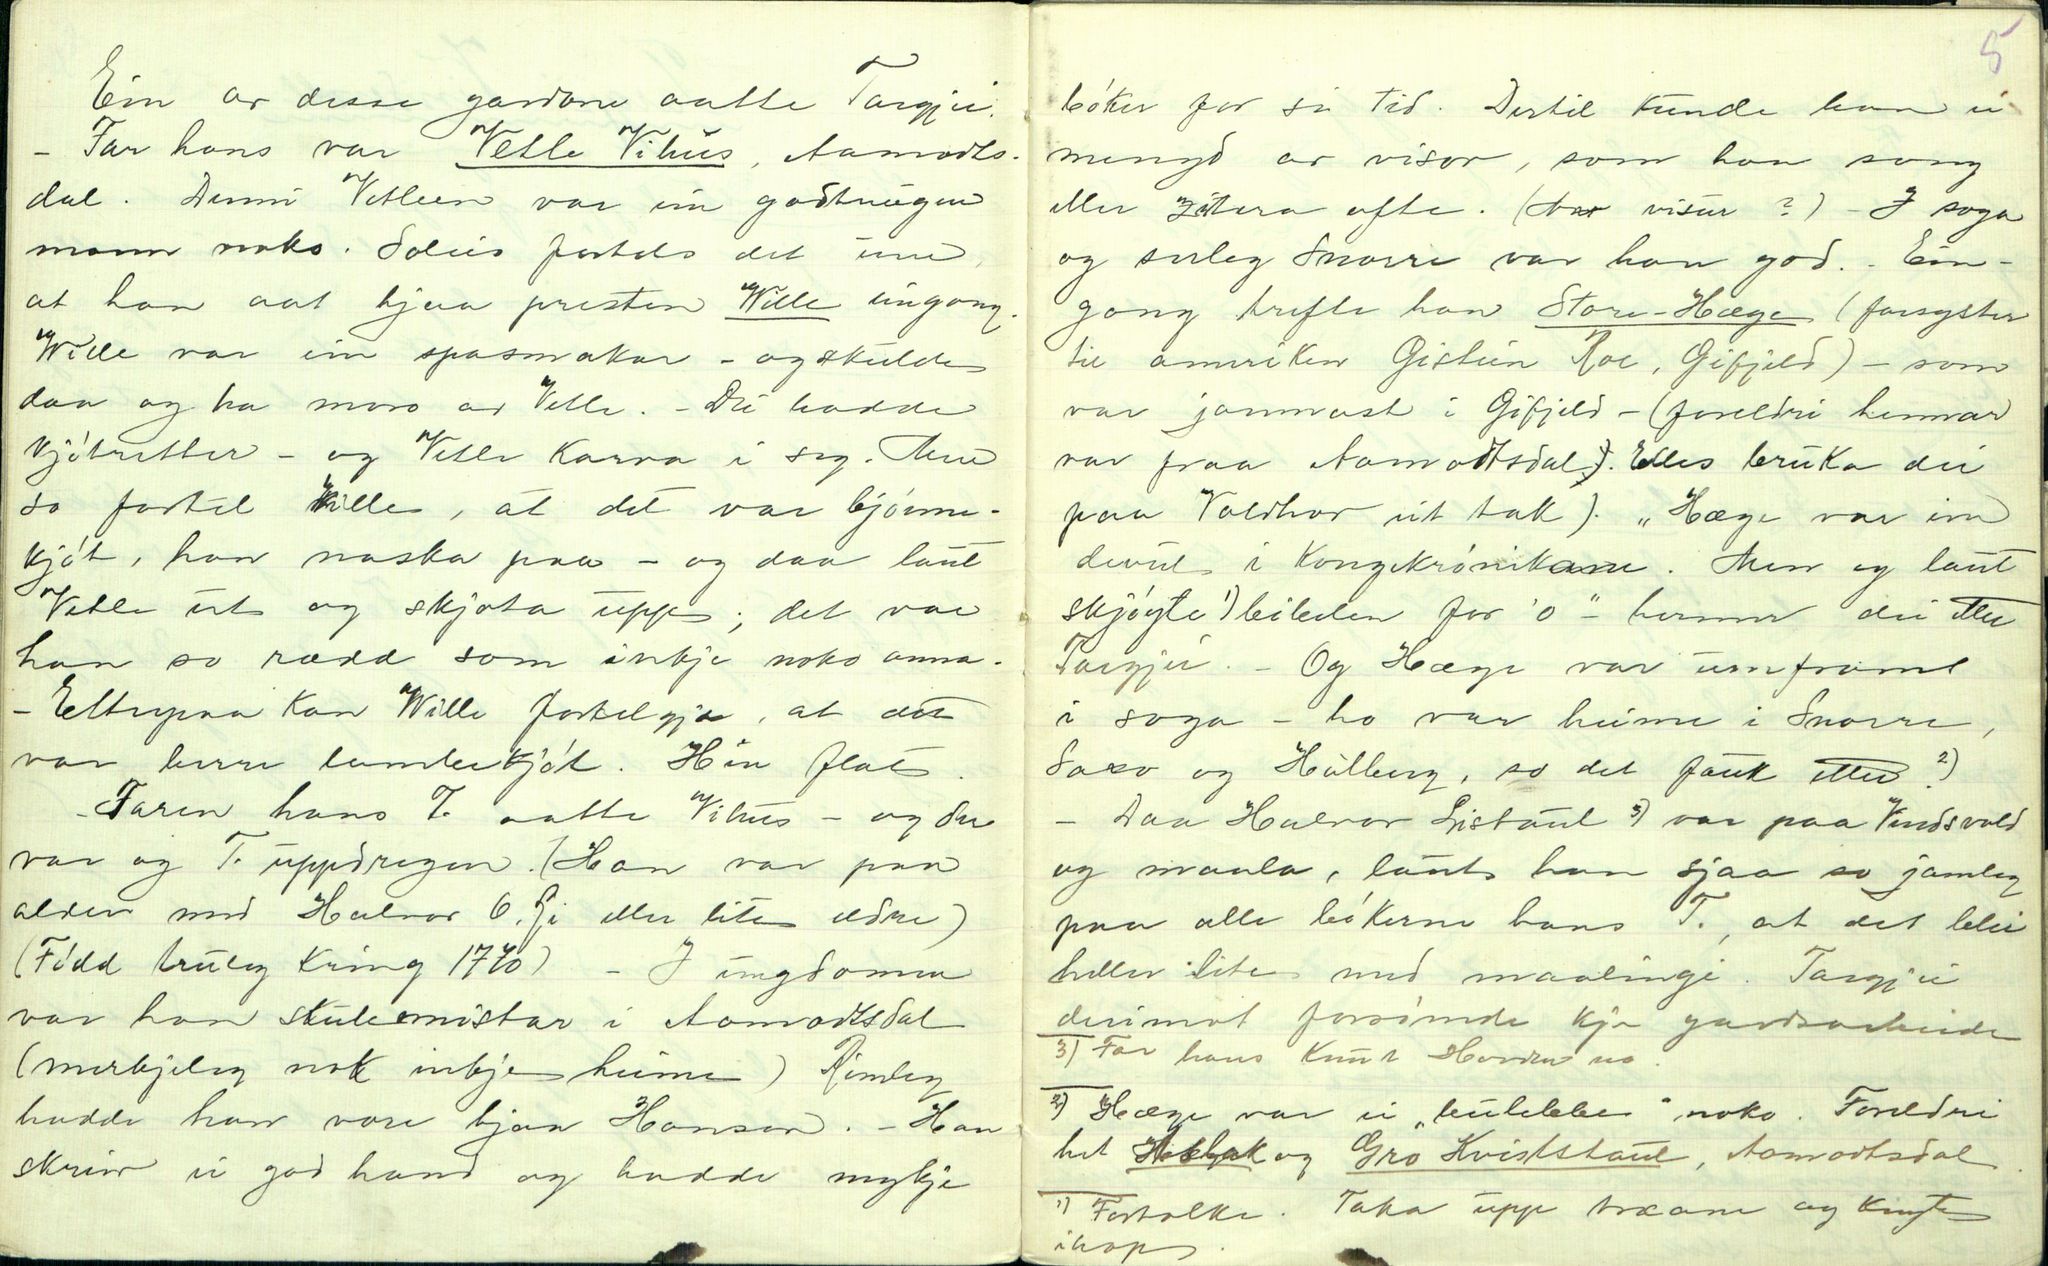 Ein av desse gardane aatte Targjei.
- Far hans var Vetle Vihus, Aamodts-
dal. Denni Vetleen var ein godtruigen
mann noko. Soleis fortels det um
at han aat hjaa presten Wille eingong.
Wille var ein spasmakar - og skulde
daa og ha moro av Vetle. - Dei hadde
kjötretter - og Vetle karva i seg. Men
so fortel Wille, at det var björne-
kjöt, han naska paa - og daa laut
Vetle ut og skjota upp; det var
han so rædd som inkje noko anna.
- Ettepaa kan Wille fortelgja, at det
var berre lambekjöt. Hin flat.
- Faren hans T. aatte Vihus - og der
var og T. uppdregen. (Han var paa
alder med Halvor O. Gi eller lite eldre)
(Född truleg kring 1770) - I ungdomen
var han skulemistar i Aamodtsdal
(merkjeleg nok inkje heime) Rimeleg
hadde han vore hjaa Hanson. - Han
skreiv ei god hand og hadde mykje
5
böker for si tid. Dertil kunde han ei
mengd av visor, som han song
eller sitera ofte. (Nokr visur ?) - I soga
og serleg Snorre var han god. - Ein-
gong trefte han Store-Hæge (farsyster
til amerikan Gistein Roe, Gifjeld) - som
var jamnast i Gifjeld - (foreldri hennar
var fraa Aamodtsdal). Elles bruka dei
paa Valdhor eit tak). "Hæge var ein
devul i Kongekrönikane. Men eg laut
skjöyte 1) beileden for 'o" - hermer dei etter
Targjei. - Og Hæge var umframt
i soga - ho var heime i Snorre,
Saxo og Hülberg, so det fauk etter 2)
- Daa Halvor Listaul 3) var paa Vindsvald
og maala, laut han sjaa so jamleg
paa alle bökerne hans T., at det blei
heller lite med maalingi. Targjei
deimot forsömde kje gardsarbeide
3) Far hans Knut Hovden no.
2) Hæge var ei "kulebbe" noko. Foreldri
het Aslak og Gro Kviststaul, Aamodtsdal.
1) Fortolke. Taka upp traane og knyte
ihop.